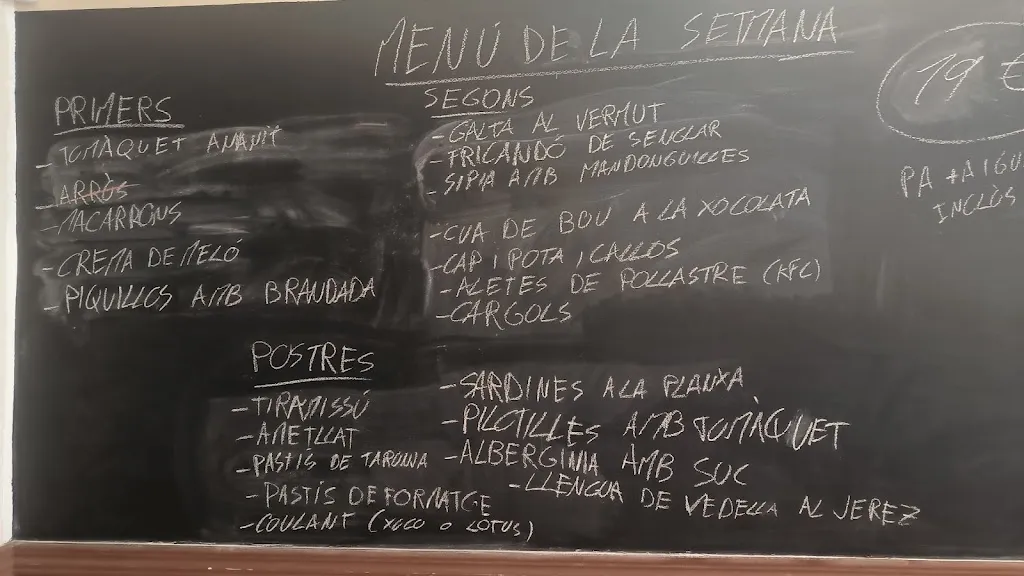 MENÚ DE LA SETMANA
19 €
PA + AIGU
INCLÒS
PRIMERS
- TOMÀQUET AMANIT
- ARRÒS
- MACARRONS
- CREMA DE MELÓ
- PIQUILLOS AMB BRANDADA
SEGONS
- GALTA AL VERMUT
- FRICANDÓ DE SENGLAR
- SIPIA AMB MANDONGUILLES
- CUA DE BOU A LA XOCOLATA
- CAP I POTA, CALLOS
- ALETES DE POLLASTRE (KFC)
- CARGOLS
- SARDINES A LA PLANXA
- PILOTILLES AMB TOMÀQUET
- ALBERGINIA AMB SUC
- LLENGUA DE VEDELLA AL JEREZ
POSTRES
- TIRAMISSÚ
- AMETLLAT
- PASTÍS DE TARONJA
- PASTÍS DE FORMATGE
- COULANT (XOCO O LOTUS)